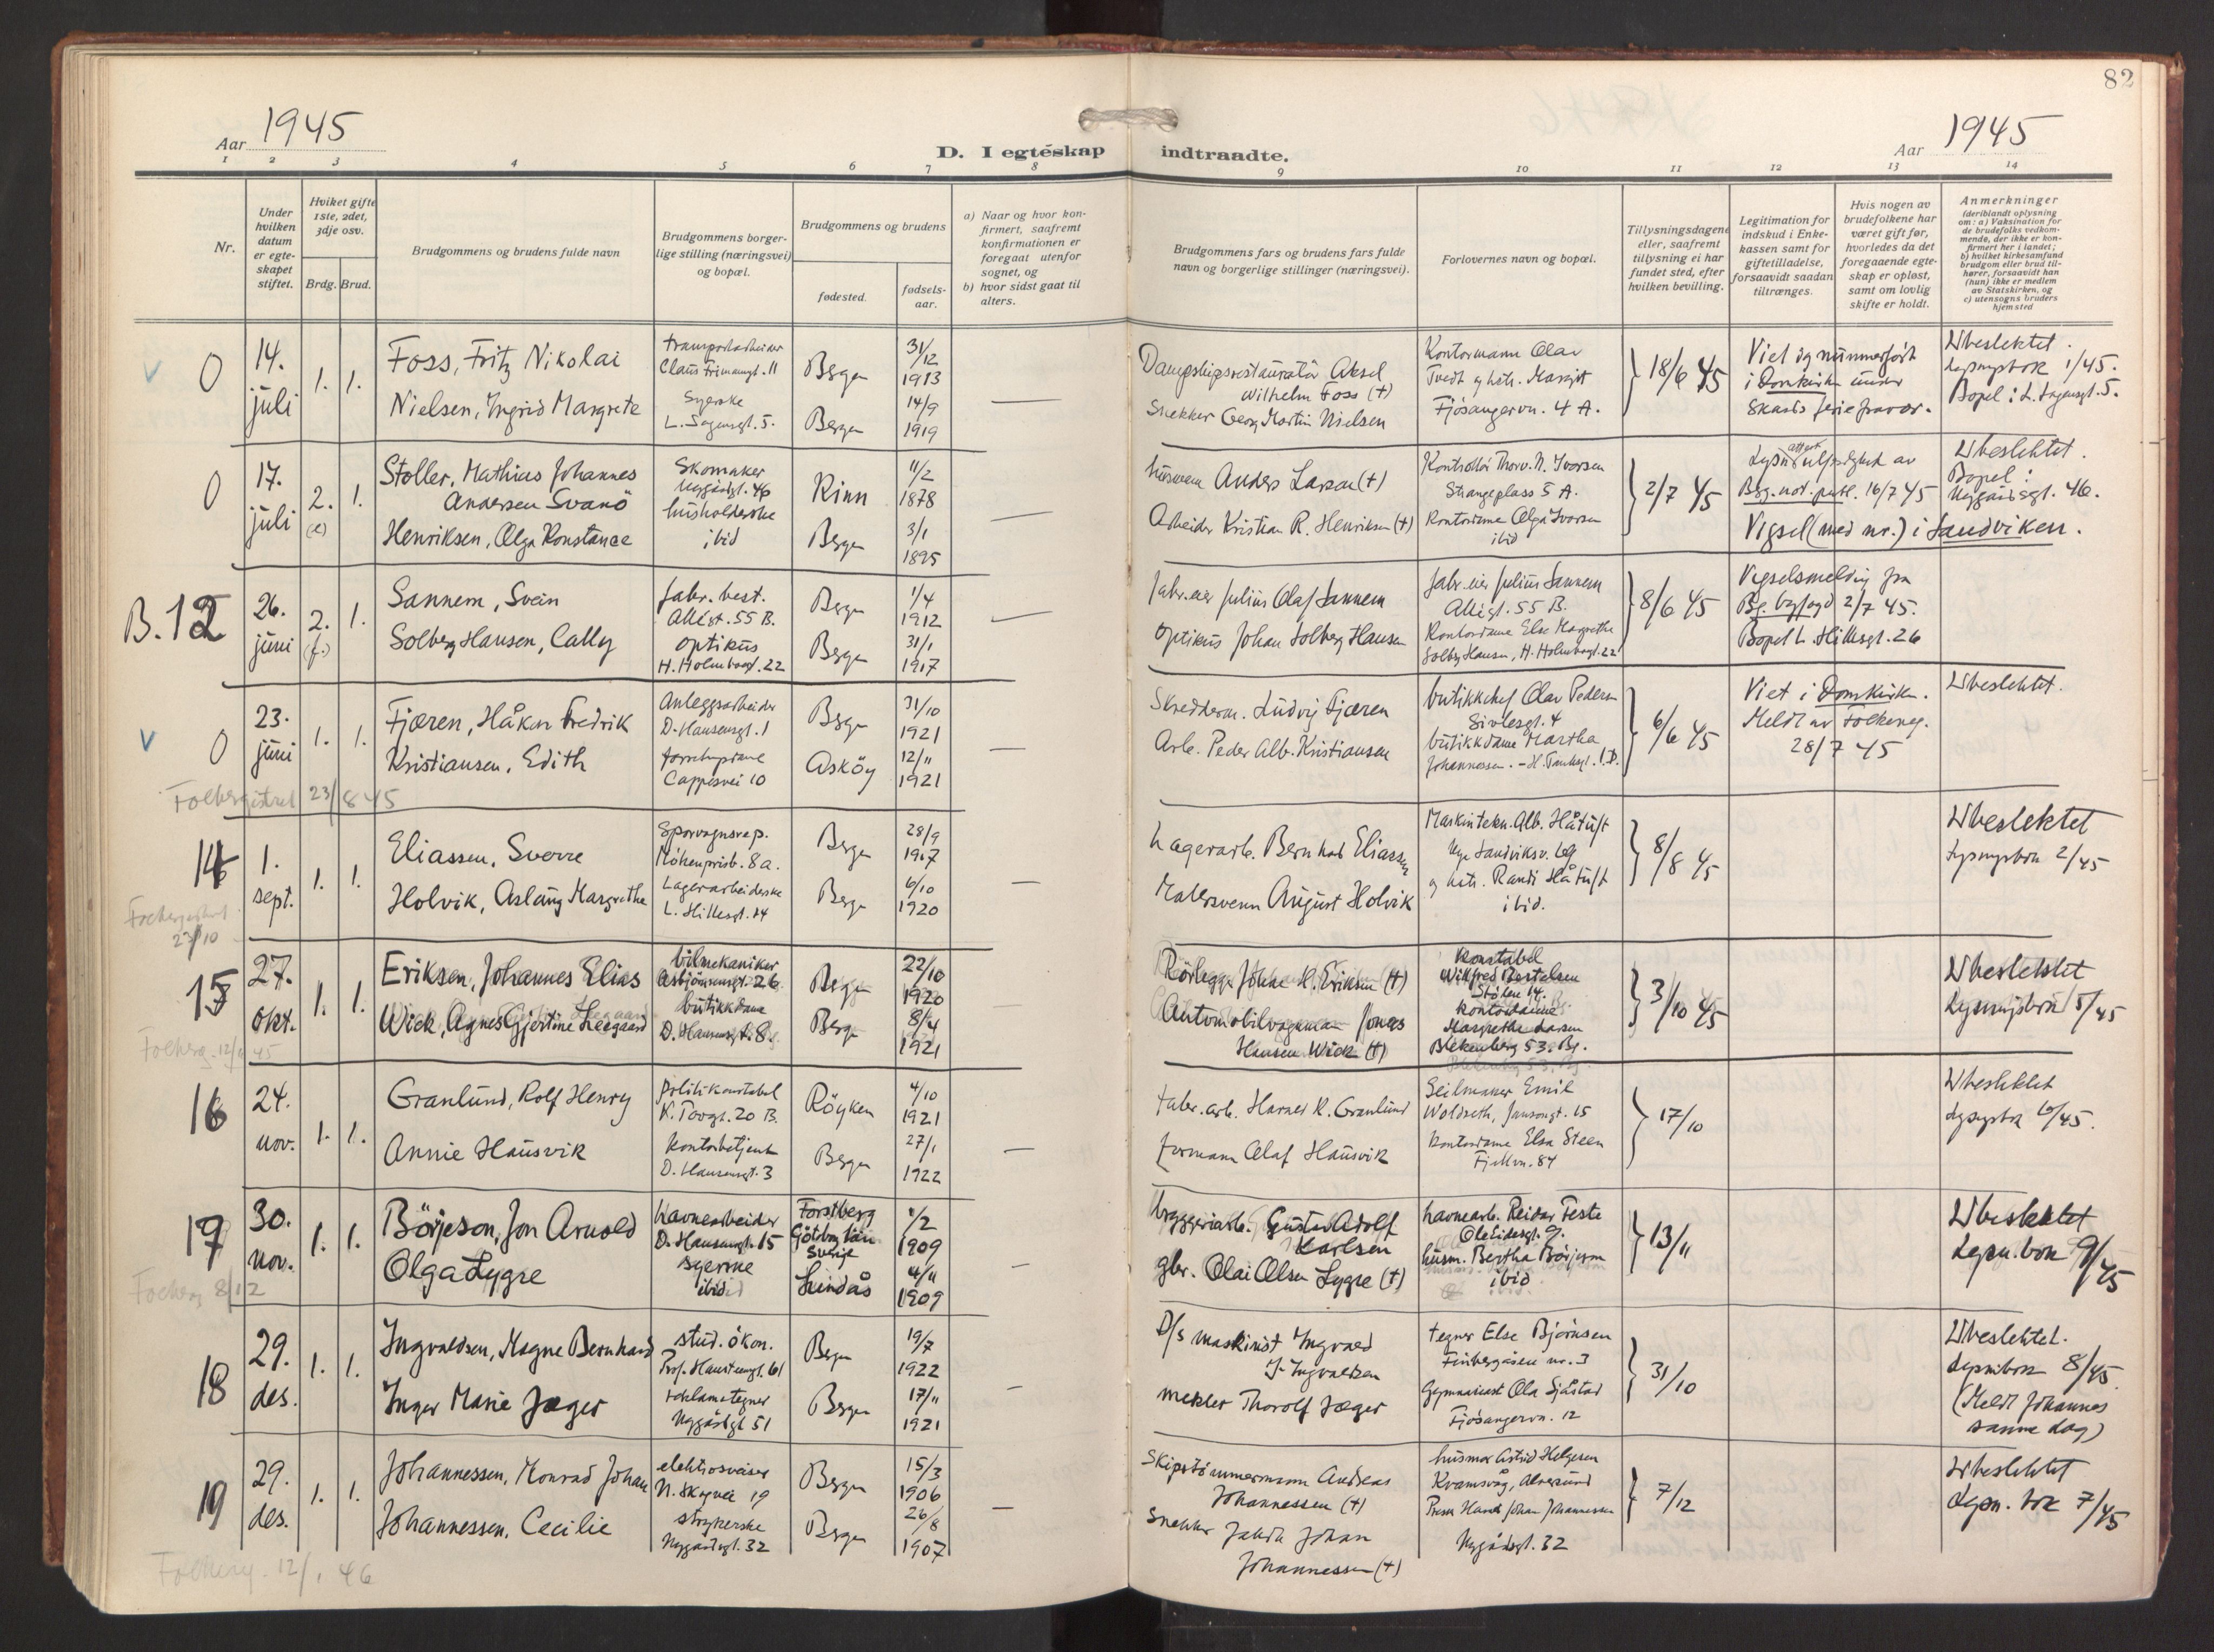 82
Aar 1945
D. I egteskap indtraadte.
Aar 1945
1 2 3 4 5 6 7 8 9 10 11 12 13 14
Nr.
Under hvilken datum er egteskapet stiftet.
Hviket gifte 1ste, 2det, 3dje osv.
Brdg. Brud.
Brudgommens og brudens fulde navn
Brudgommens borgerlige stilling (næringsvei) og bopæl.
Brudgommens og brudens
fødested.
fødselsaar.
a) Naar og hvor konfirmert, saafremt konfirmationen er foregaat utenfor sognet, og
b) hvor sidst gaat til alters.
Brudgommens fars og brudens fars fulde navn og borgerlige stillinger (næringsvei).
Forlovernes navn og bopæl.
Tillysningsdagene eller, saafremt tillysning ei har fundet sted, efter hvilken bevilling.
Legitimation for indskud i Enkekassen samt for giftetilladelse, forsaavidt saadan tiltrænges.
Hvis nogen av brudefolkene har været gift før, hvorledes da det foregaaende egteskap er opløst, samt om lovlig skifte er holdt.
Anmerkninger
(deriblandt oplysning om: a) Vaksination for de brudefolks vedkommende, der ikke er konfirmert her i landet; b) hvilket kirkesamfund brudgom eller brud tilhører, forsaavidt han (hun) ikke er medlem av Statskirken, og c) utensogns bruders hjemsted
0 14. juli 1. 1.
Foss, Fritz Nikolai
transportarbeider
Claus Frimannsgt. 11
Bergen 31/12 1913
Nielsen, Ingrid Margrete
Syerske
L. Sagensgt. 5.
Bergen 14/9 1919
Dampskipsrestauratør Aksel
Wilhelm Foss (+)
Snekker Georg Martin Nielsen
Kontormann Olav
Tvedt og hstr. Margit
Fjøsangervn. 4 A.
18/6 45
Viet og nummerført
i Domkirken under
Skards feriefravær.
Ubeslektet.
Lysnингsbok 1/45.
Bopel: L. Sagensgt. 5.
0 17. juli 2. (e) 1.
Stoller, Mathias Johannes
Andersen Svanö
Skomaker
Nygårdsgt. 46
Kinn 11/2 1878
Henriksen, Olga Konstance
husholderske
ibid
Bergen 3/1 1895
husmann Anders Larsen (+)
Arbeider Kristian R. Henriksen (+)
Kontrollör Thorv. N. Ivarsen
Strangeplass 5 A.
Kontordame Olga Ivarsen
ibid
2/7 45
Bg. not. publ. 16/7 45
Vigsel (med nr.) i Sandviken.
Ubeslektet.
Bopel:
Nygårdsgt. 46.
B. 12 26. juni 2. (f.) 1.
Sannem, Svein
fabr. best.
Allégt. 55 B.
Bergen 1/4 1912
Solberg Hansen, Cally
optikus
H. Holmboesgt. 22
Bergen 31/1 1917
fabr. eier Julius Olaf Sannem
Optikus Johan Solberg Hansen
fabr. eier Julius Sannem
Allégt. 55 B.
Kontordame Else Margrethe
Solberg Hansen, H. Holmboesgt. 22
8/6 45
Vigselsmelding fra
Bg. byfogd 2/7 45.
Bopel L. Hillesgt. 26
0 23. juni 1. 1.
Fjæren, Håkon Fredrik
Anleggsarbeider
D. Hansensgt. 1
Bergen 31/10 1921
Kristiansen, Edith
forretningsdame
Cappesvei 10
Asköy 12/11 1921
Skredderm. Ludvig Fjæren
Arb. Peder Alb. Kristiansen
butikkchef Olav Pedersen
Sivlesgt. 4
butikkdame Martha
Johannessen
6/6 45
Viet i Domkirken.
Meldt av Folkereg.
28/7 45
Ubeslektet.
Folkeregistrert 23/8 45
14 1. sept. 1. 1.
Eliassen, Sverre
Sporvognsrep.
Möhlenprisb. 8 a.
Bergen 28/9 1917
Holvik, Aslaug Margrethe
Lagerarbeiderske
L. Hillesgt. 14
Bergen 6/10 1920
Lagerarb. Bernhard Eliassen
Malersvenn August Holvik
Maskintekn. Alb. Håtuft
Nye Sandviksv. 69
og hstr. Randi Håtuft
ibid.
8/8 45
Ubeslektet
Lysningsbok 2/45
Folkeregistrert
23/10
15 27. okt. 1. 1.
Eriksen, Johannes Elias
bilmekaniker
Asbjörnsensgt. 26
Bergen 22/10 1920
Wick, Agnes Gjertine Heegaard
butikkdame
D. Hansensgt. 8.
Bergen 8/4 1921
Rörlegger Johan K. Eriksen (+)
Automobilvognmann Jonas
Hansen Wick (+)
Konstabel
Wilfred Bertelsen
Stölen 14.
Kontordame
Margrethe Larsen
Blekenberg 53. Bg.
3/10 45
Ubeslektet
Lysningsbok 5/45
Folkereg. 12/11 45
16 24. nov. 1. 1.
Granlund, Rolf Henry
politikonstabel
K. Torvgt. 20 B.
Röyken 4/10 1921
Annie Hausvik
Kontorbetjent
D. Hansensgt. 3
Bergen 27/1 1922
Fabr. arb. Harald R. Granlund
formann Olaf Hausvik
Seilmaker Emil
Woldseth, Jansonsgt. 15
Kontordame Elsa Steen
Fjellvn. 84
17/10
Ubeslektet
Lysningsbok 6/45.
17 30. nov. 1. 1.
Börjeson, Jon Arnold
havnearbeider
D. Hansensgt. 15
Forstberg
Götebog län
Sverige
1/2 1909
Olga Lygre
syerske
ibid
Lindås 4/11 1909
bryggeriarb. Gustav Adolf
Karlsen
gbr. Olai Olsen Lygre (+)
havnearb. Reidar Teste
Ole Eidesgt. 9.
husm. Bertha Börjeson
ibid
13/11
Ubeslektet
Lysn. bok 9/45
Folkereg 8/12
18 29. des. 1. 1.
Ingvaldsen, Magne Bernhard
stud. ökon.
Prof. Hansteensgt. 61
Bergen 19/7 1922
Inger Marie Jæger
reklametegner
Nygårdsgt 51
Bergen 17/11 1921
D/s maskinist Ingvald
J. Ingvaldsen
mekler Thorolf Jæger
tegner Else Björnsen
Finbergåsen nr. 3
Gymnasiast Ola Sjåstad
Fjösangervn. 12
31/10
Ubeslektet.
Lysnbok 8/45
(Meldt Johannes
samme dag)
19 29. des. 1. 1.
Johannessen, Monrad Johan
elektrosveiser
N. Skogvei 19
Bergen 15/3 1906
Johannessen, Cecilie
strykerske
Nygårdsgt. 32
Bergen 26/8 1907
Skipstömmermann Andreas
Johannessen (+)
Snekker Jakob Johan
Johannessen (+)
husmor Astrid Helgesen
Kvamsvåg, Alversund
Harald Johan Johannessen
Nygårdsgt. 32
7/12
Ubeslektet
Lysn. bok 7/45
Folkereg. 12/1 46